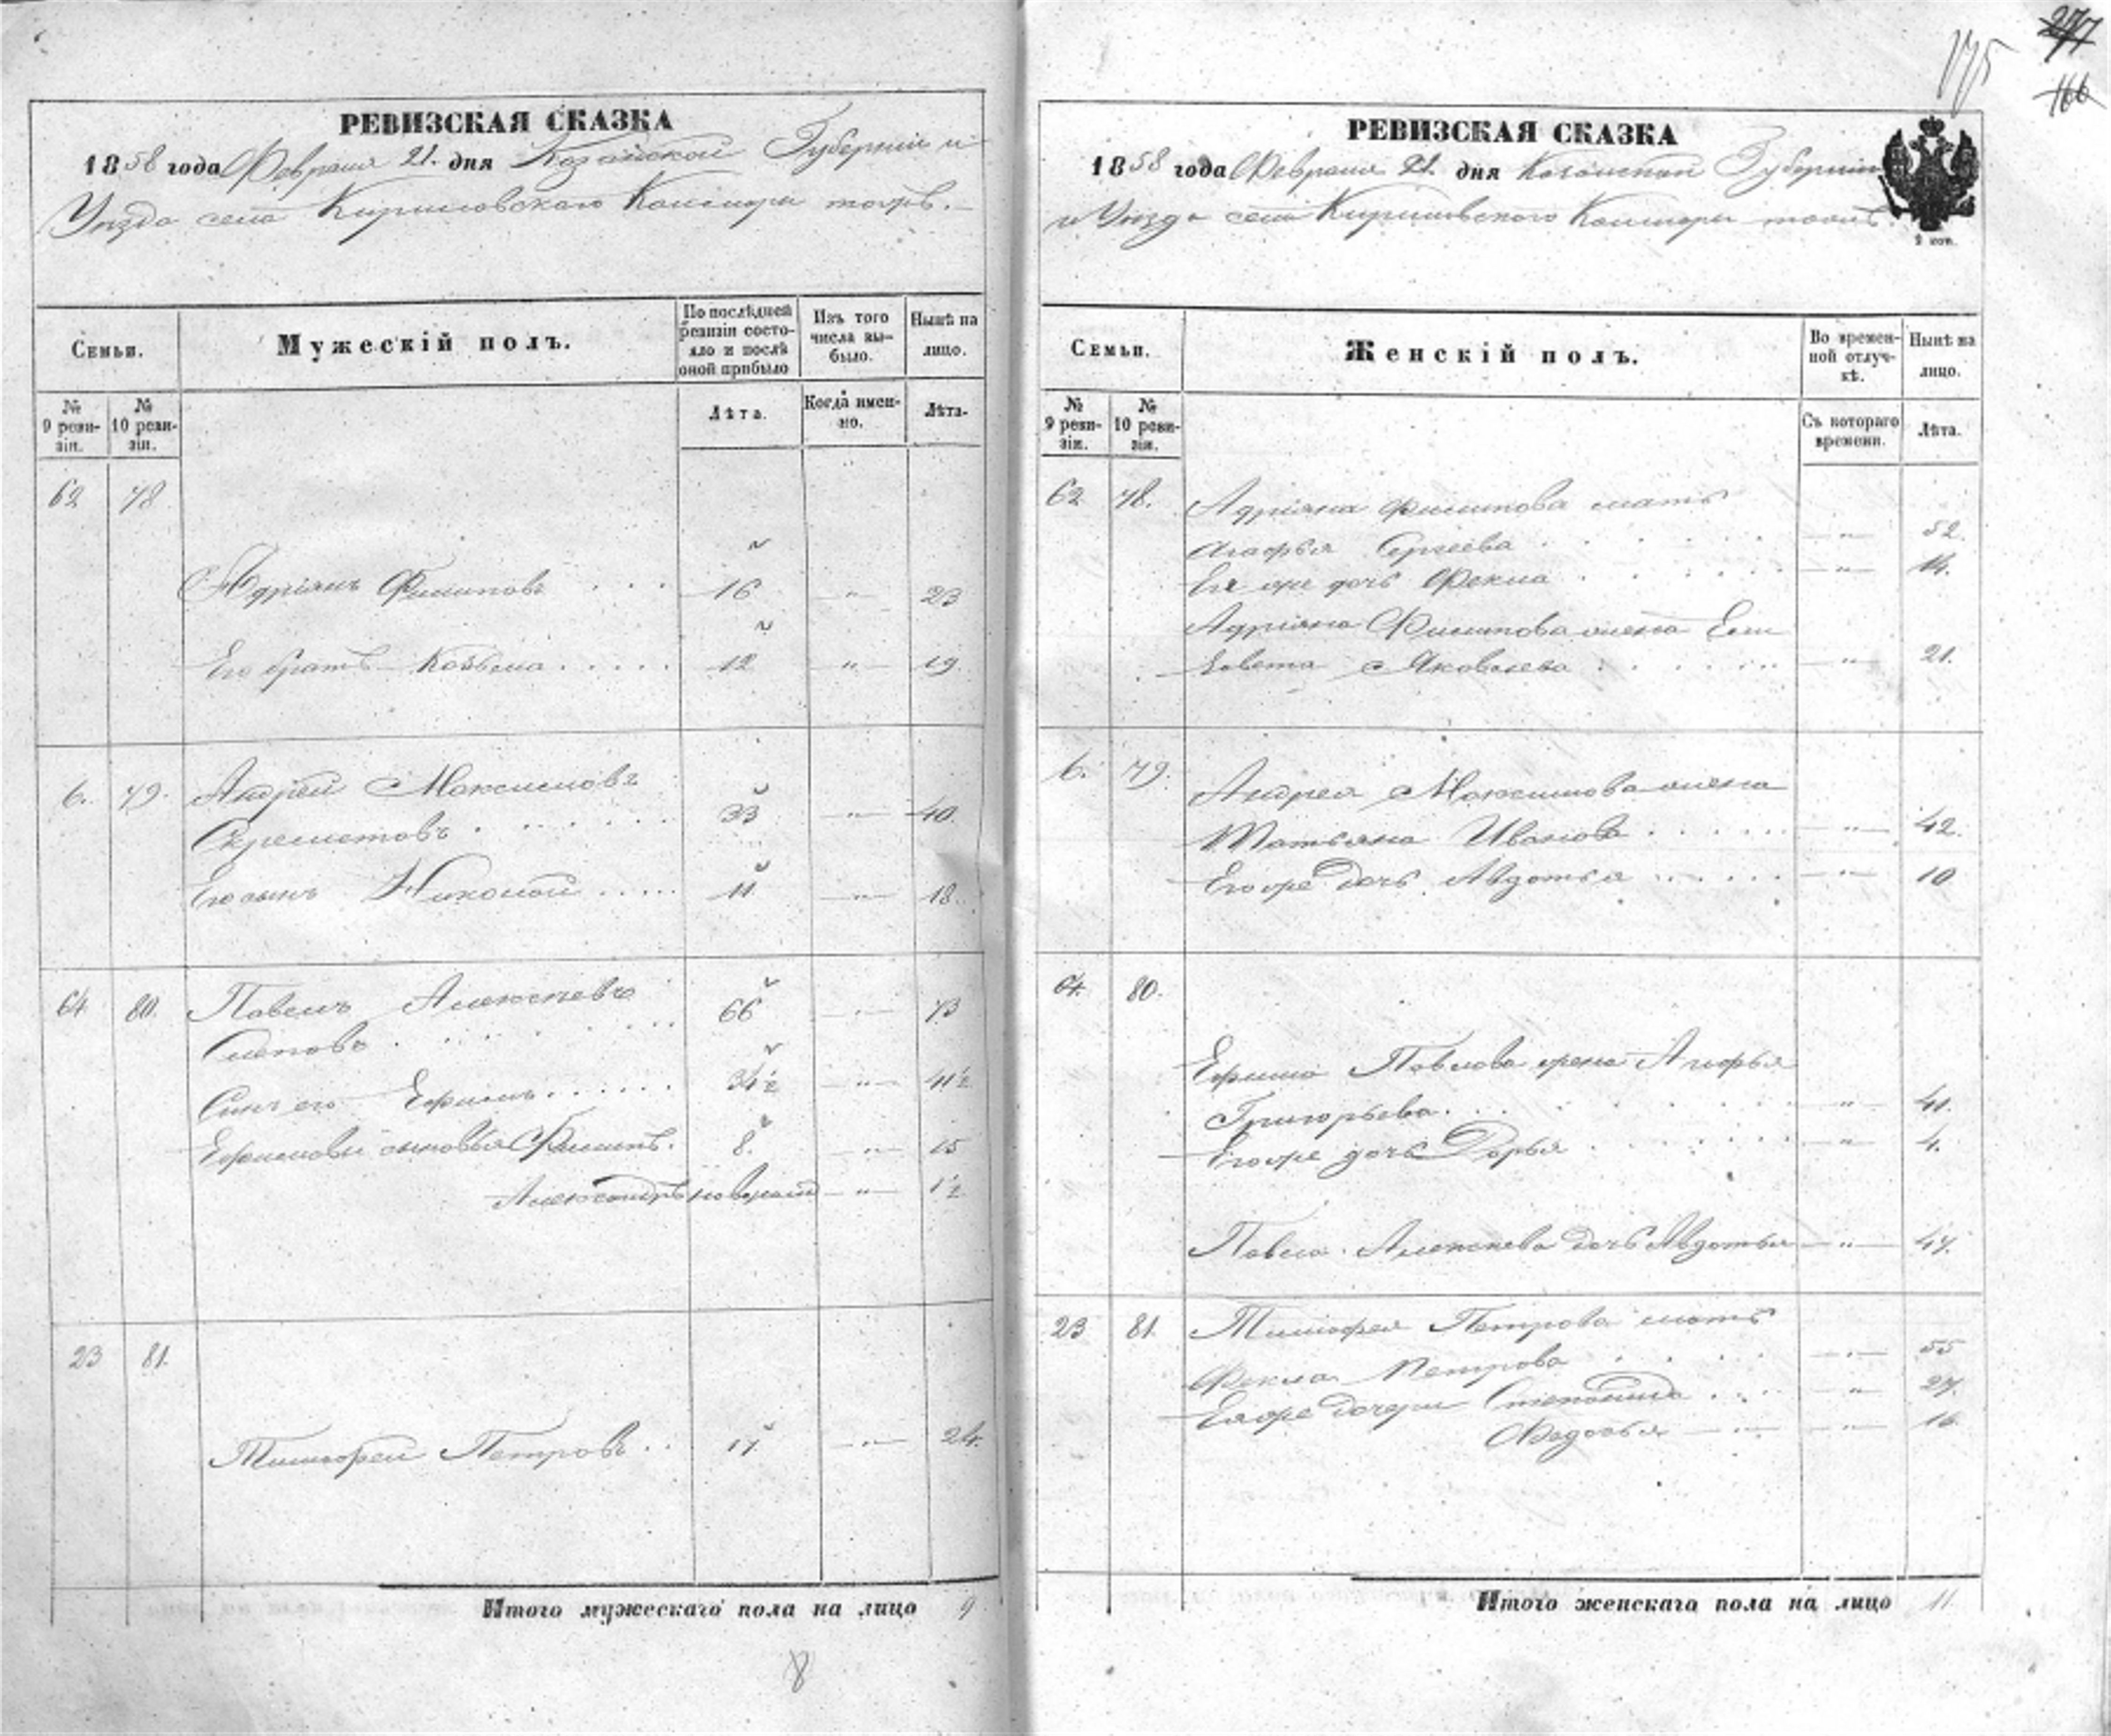 РЕВИЗСКАЯ СКАЗКА
1858 года Февраля 21. дня Казанской Губернiи и
Уѣзда села Кириловскаго Каймары тожъ.
Семьи.
Мужескій полъ.
По послѣдней ревизіи состояло и послѣ оной прибыло
Изъ того числа выбыло.
Нынѣ на лицо.
№ 9 ревизіи.
№ 10 ревизіи.
Лѣта.
Когда именно.
Лѣта.
62 78
Адріянъ Филиповъ 16 " 23
Его братъ Козьма 12 " 19
6. 79. Андрей Максимовъ
33 " 40.
Его сынъ Николай 11 " 18.
64 80. Павелъ Алексѣевъ 66 " 73
Слеповъ
Сынъ его Ефимъ 34½ " 41½
Ефимовы сыновья Филипъ. 8. " 15
Александръ новорожд " ½
23 81.
Тимофей Петровъ 17 " 24.
Итого мужескаго пола на лицо 9
8
277
166
175
РЕВИЗСКАЯ СКАЗКА
1858 года Февраля 21. дня Казанской Губерніи
и Уѣзда села Кириловского Каймары тожъ
2 коп.
Семьи.
Женскій полъ.
Во временной отлучкѣ.
Нынѣ на лицо.
№ 9 ревизіи.
№ 10 ревизіи.
Съ котораго времени.
Лѣта.
62 78. Адріяна Филипова мать
Агафья Сергѣева " 52.
Ея же дочь Фекла " 14.
Адріяна Филипова жена Ели
завета Яковлева " 21.
6. 79. Андрея Максимова жена
Татьяна Иванова " 42.
Его же дочь Авдотья " 10
64. 80.
Ефима Павлова жена Агафья
Григорьева. " 41.
Его же дочь Дарья " 4.
Павла Алексѣева дочь Авдотья " 47.
23 81. Тимофея Петрова мать
Фекла Петрова " 55
Ея же дочери Степанида " 27.
Федосья " 16
Итого женскаго пола на лицо 11.